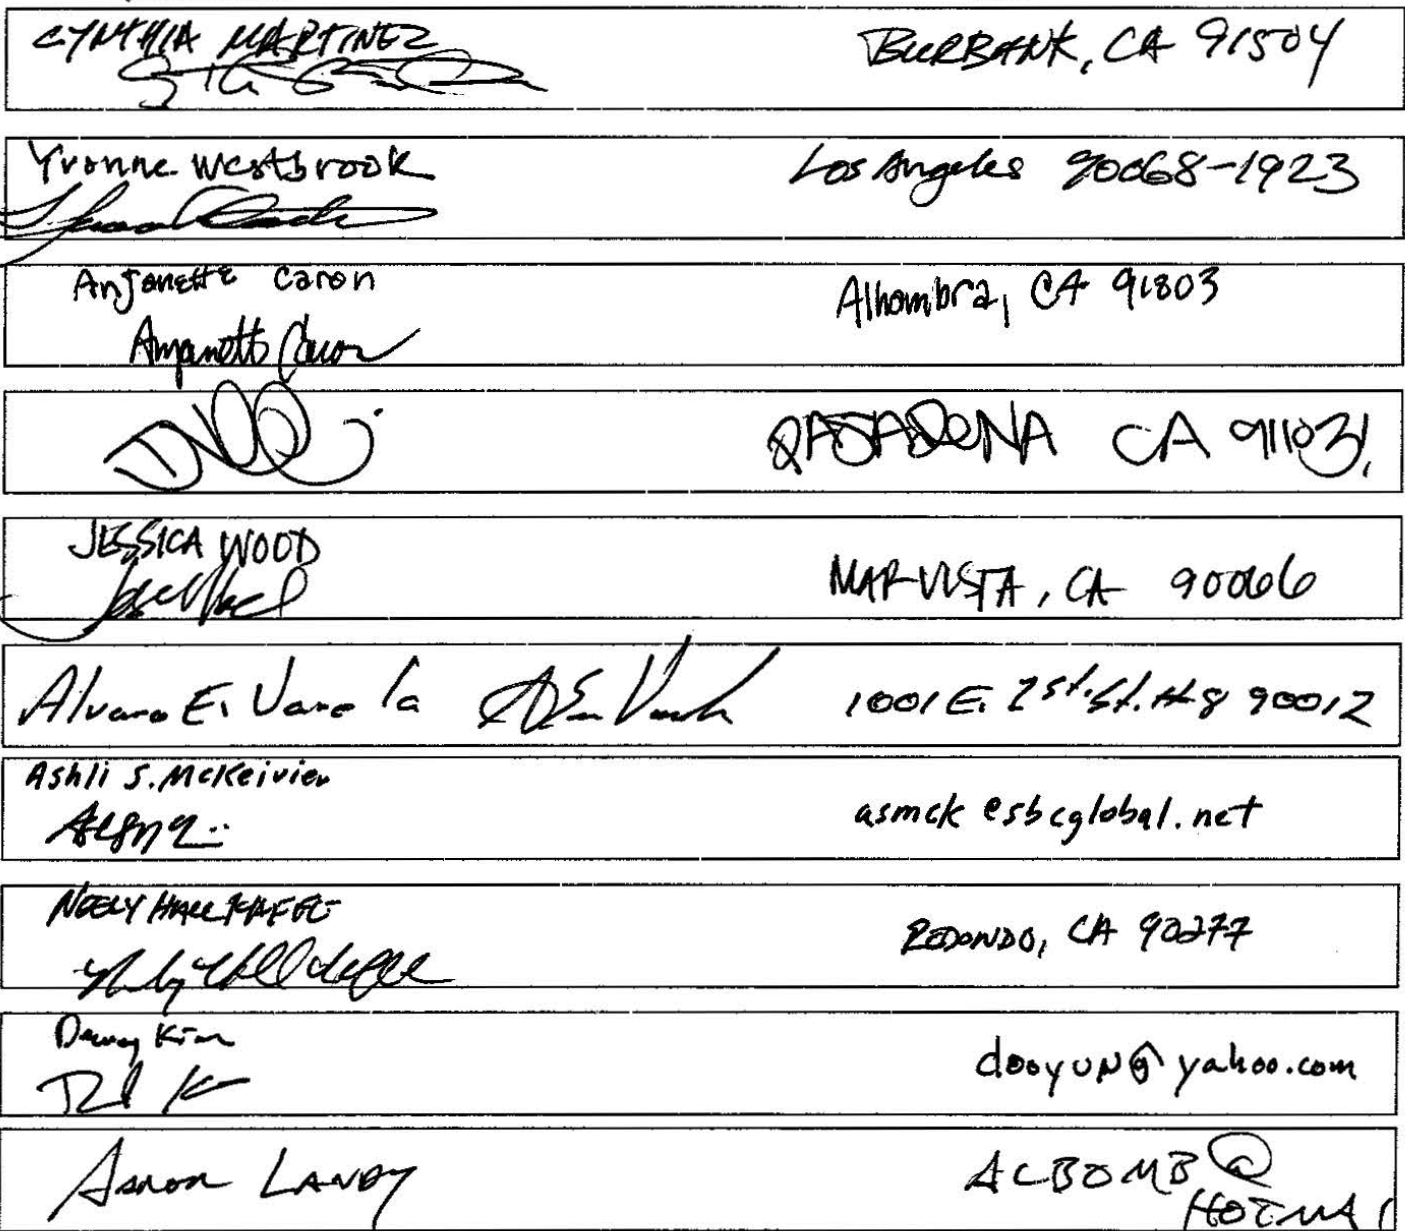 CYNTHIA MARTINEZ BURBANK, CA 91504
Yvonne Westbrook Los Angeles 90068-1923
Anjonette Caron Alhambra, CA 91803
Anjanette Caron
PASADENA CA 91103
JESSICA WOOD
MAR VISTA, CA 90066
Alvaro E. Varela 1001 E. 1st. St. #8 90012
Ashli S. McKeivier
asmck@sbcglobal.net
NEELY HALL
REDONDO, CA 90277
Kim
dooyun@yahoo.com
Aaron LANDY ACBOMB@
HOTMAI